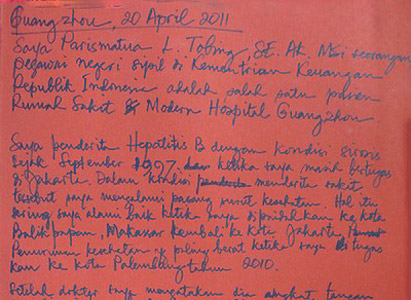 Guangzhou, 20 April 2011
Saya Parismatua L. Tobing, SE. Ak. MSi seorang
pegawai negeri sipil di Kementrian Keuangan
Republik Indonesia adalah salah satu pasien
Rumah Sakit Modern Hospital Guangzhou
Saya penderita Hepatitis B dengan kondisi sirosis
sejak September 1997 ketika saya masih bertugas
di Jakarta. Dalam kondisi menderita sakit
tersebut saya mengalami pasang surut kesehatan. Hal itu
sering saya alami baik ketika saya dipindahkan ke kota
Balikpapan, Makassar kembali ke kota Jakarta,
Penurunan kesehatan yg paling berat ketika saya ditugas
kan ke kota Palembang tahun 2010.
Setelah dokter saya mengatakan dia angkat tangan